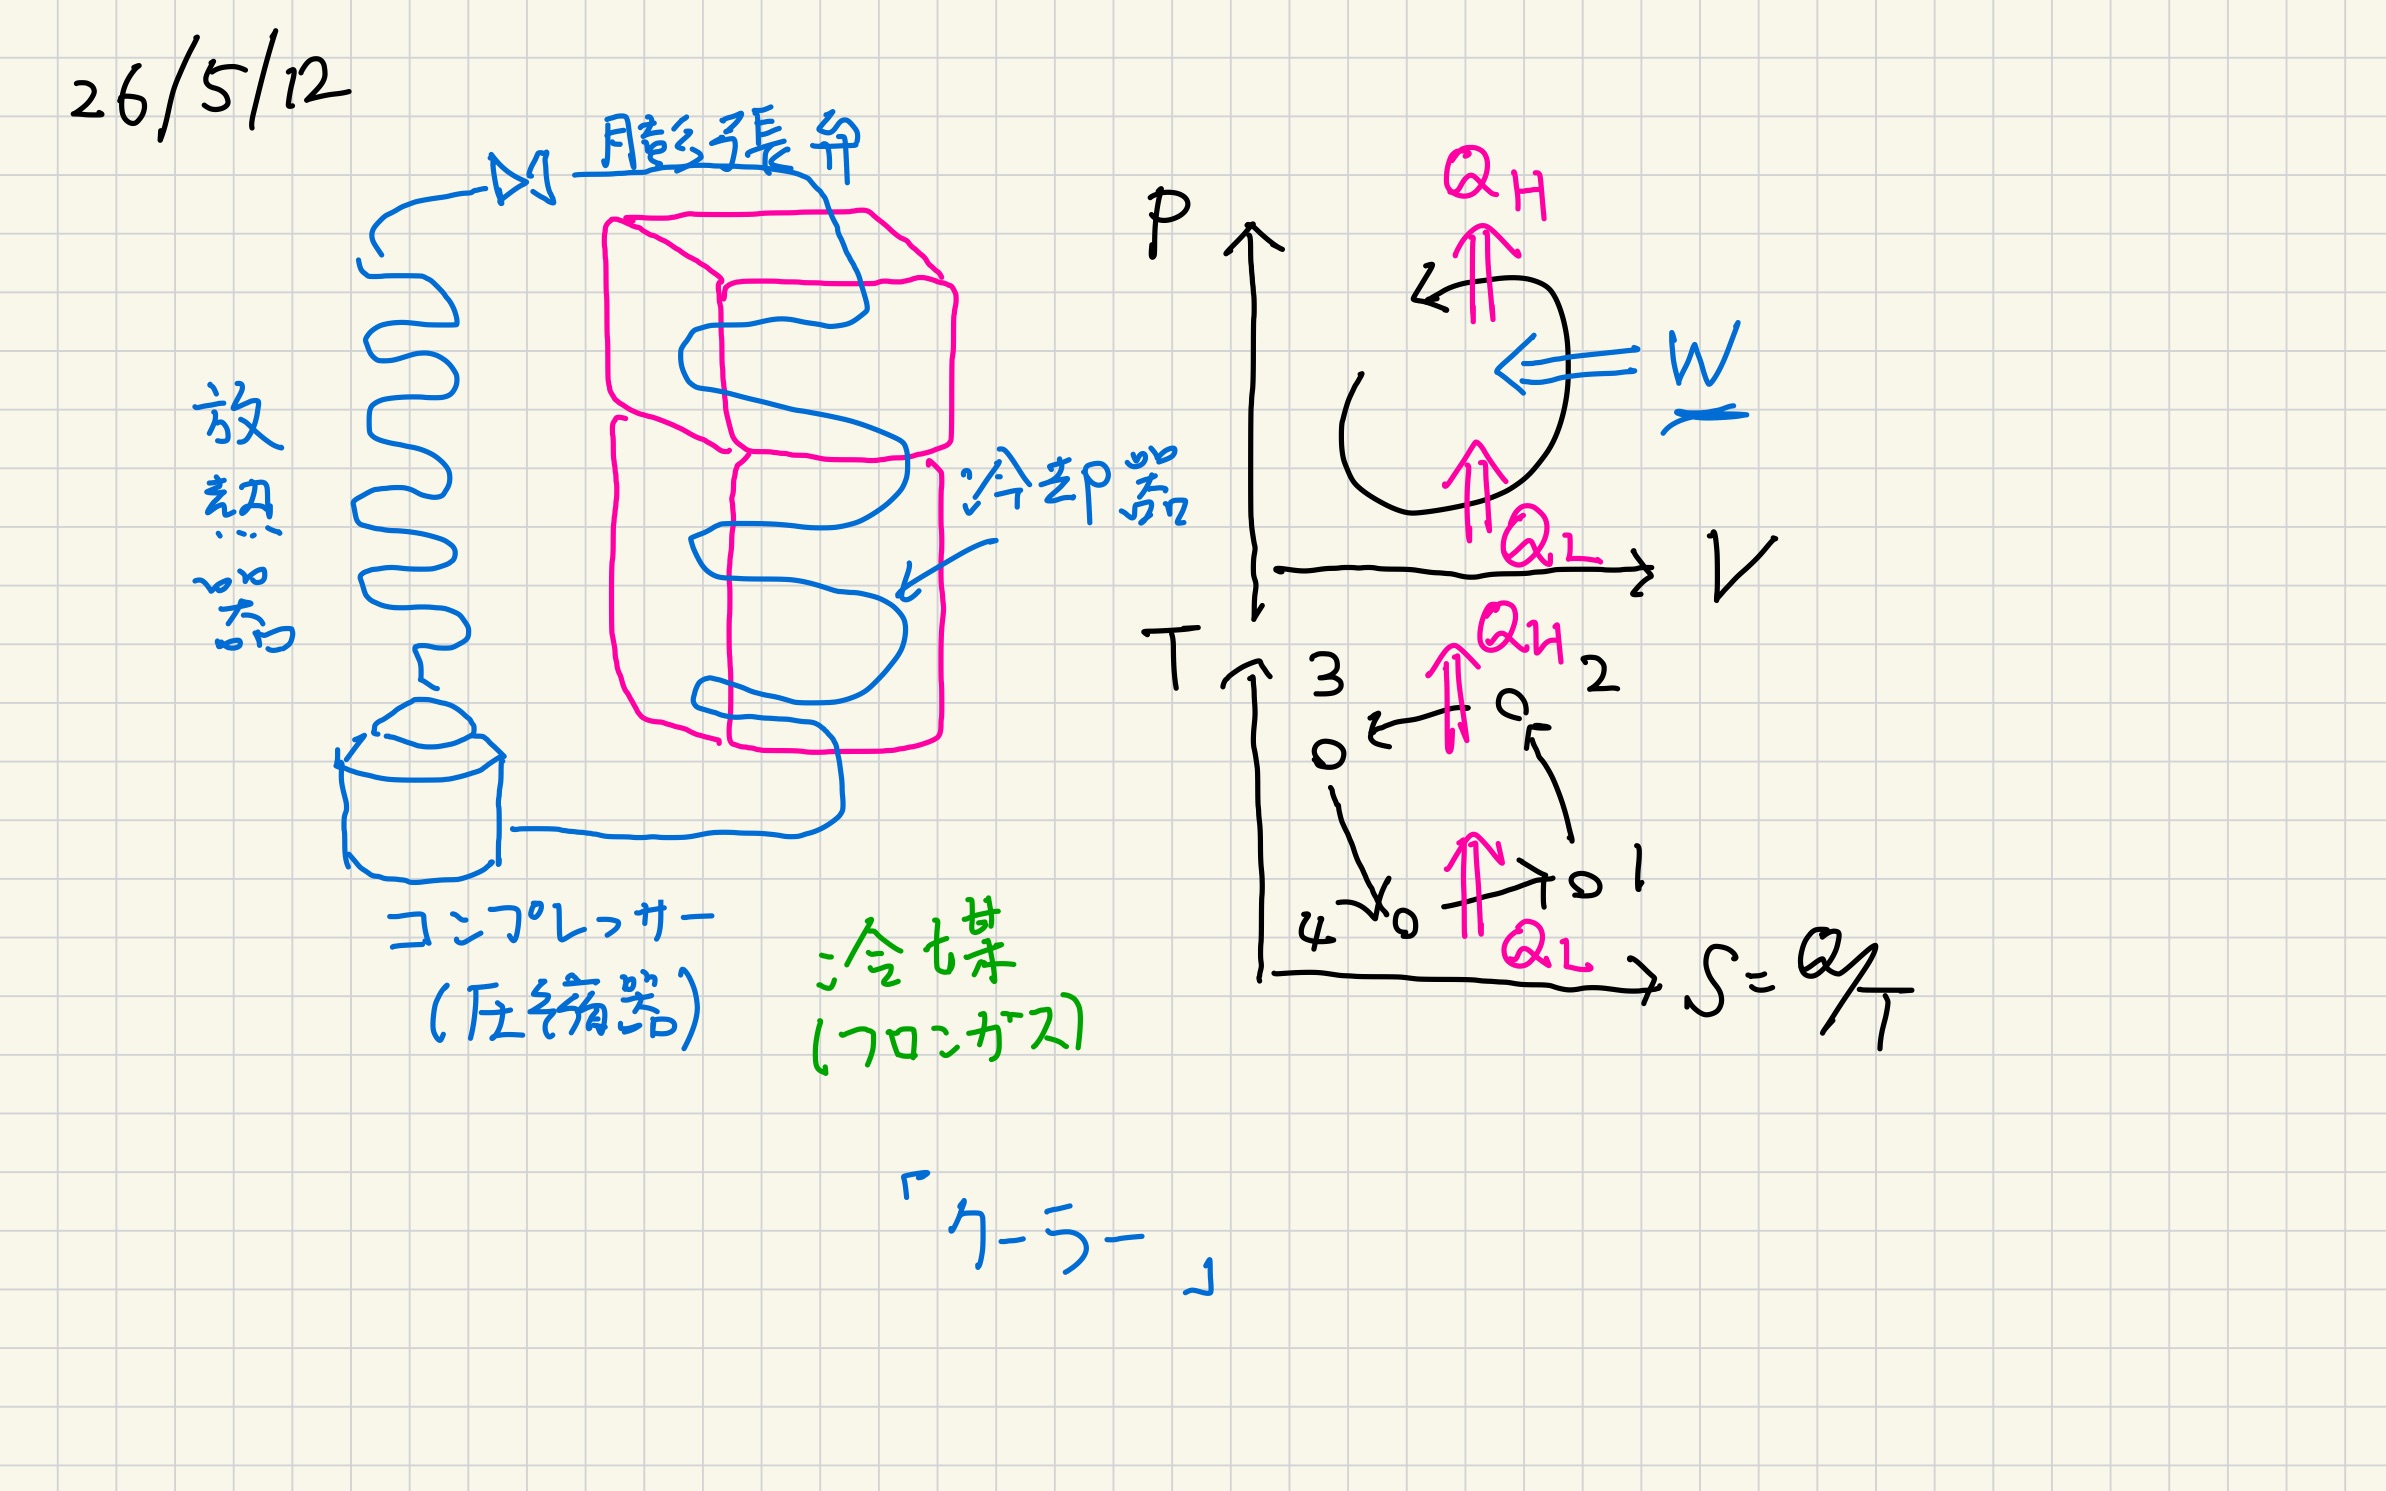 26/5/12
膨張弁
放熱器
冷却器
コンプレッサー
(圧縮器)
冷媒
(フロンガス)
「クーラー」
P
QH
W
QL
V
T
QH
3
2
4
1
QL
S=Q/T